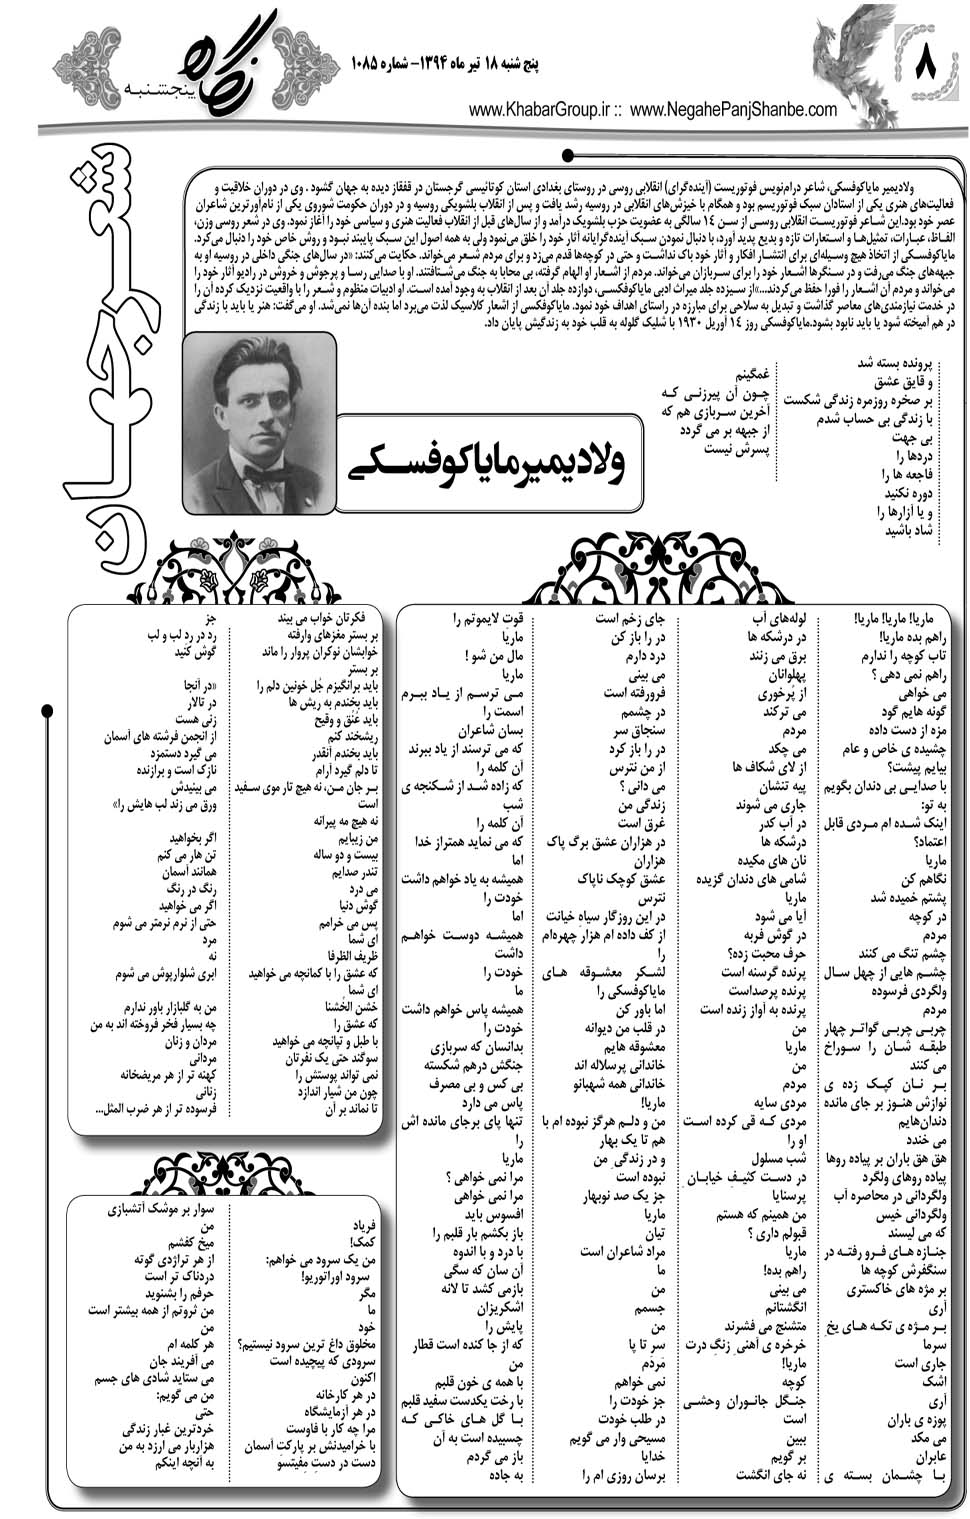 ۸
پنج شنبه ۱۸ تیر ماه ۱۳۹۴- شماره ۱۰۸۵
www.KhabarGroup.ir :: www.NegahePanjShanbe.com
نگاه
پنجشنبه
شعر جهان
ولادیمیر مایاکوفسکی، شاعر درام‌نویس فوتوریست (آینده‌گرای) انقلابی روسی در روستای بغدادی استان کوتائیسی گرجستان در قفقاز دیده به جهان گشود . وی در دوران خلاقیت و
فعالیت‌های هنری یکی از استادان سبک فوتوریسم بود و همگام با خیزش‌های انقلابی در روسیه رشد یافت و پس از انقلاب بلشویکی روسیه و در دوران حکومت شوروی یکی از نام‌آورترین شاعران
عصر خود بود.این شاعر فوتوریست انقلابی روسی از سن ۱۴ سالگی به عضویت حزب بلشویک درآمد و از سال‌های قبل از انقلاب فعالیت هنری و سیاسی خود را آغاز نمود. وی در شعر روسی وزن،
الفـاظ، عبارات، تمثیل‌هـا و اسـتعارات تازه و بدیع پدید آورد، با دنبال نمودن سبک آینده‌گرایانه آثار خود را خلق می‌نمود ولی به همه اصول این سبک پایبند نبـود و روش خاص خود را دنبال می‌کرد.
مایاکوفسکی از اتخاذ هیچ وسیله‌ای برای انتشار افکار و آثار خود باک نداشت و حتی در کوچه‌ها قدم می‌زد و برای مردم شعر می‌خواند. حکایت می‌کنند: «در سال‌های جنگی داخلی در روسیه او به
جبهه‌های جنگ می‌رفت و در سنگرها اشـعار خود را برای سـربازان می‌خواند. مردم از اشعار او الهام گرفته، بی محابا به جنگ می‌شـتافتند. او با صدایی رسا و پرجوش و خروش در رادیو آثار خود را
می‌خواند و مردم آن اشـعار را فورا حفظ می‌کردند...»از سیزده جلد میراث ادبی مایاکوفسکی، دوازده جلد آن بعد از انقلاب به وجود آمده است. او ادبیات منظوم و شـعر را با واقعیت نزدیک کرده آن را
در خدمت نیازمندی‌های معاصر گذاشت و تبدیل به سلاحی برای مبارزه در راستای اهداف خود نمود. مایاکوفکسی از اشعار کلاسیک لذت می‌برد اما بنده آن‌ها نمی‌شد. او می‌گفت: هنر یا باید با زندگی
در هم آمیخته شود یا باید نابود بشود.مایاکوفسکی روز ۱۴ آوریل ۱۹۳۰ با شلیک گلوله به قلب خود به زندگیش پایان داد.
پرونده بسته شد
و قایق عشق
بر صخره روزمره زندگی شکست
با زندگی بی حساب شدم
بی جهت
دردها را
فاجعه ها را
دوره نکنید
و یا آزارها را
شاد باشید
غمگینم
چـون آن پیرزنـی کـه
آخرین سـربازی هم که
از جبهه بر می گردد
پسرش نیست
ولادیمیرمایاکوفسـکی
ماریا! ماریا! ماریا!
راهم بده ماریا!
تاب کوچه را ندارم
راهم نمی دهی ؟
می خواهی
گونه هایم گود
مزه از دست داده
چشیده ی خاص و عام
بیایم پیشت؟
با صدایـی بی دندان بگویم
به تو:
اینک شـده ام مـردی قابل
اعتماد؟
ماریا
نگاهم کن
پشتم خمیده شد
در کوچه
مردم
چشم تنگ می کنند
چشـم هایی از چهل سـال
ولگردی فرسوده
مردم
چربـی چربـی گواتـر چهار
طبقـه شـان را سـوراخ
می کنند
بـر نـان کپـک زده ی
نوازش هنـوز بر جای مانده
دندان‌هایم
می خندد
هق هق باران بر پیاده روها
پیاده روهای ولگرد
ولگردانی در محاصره آب
ولگردانی خیس
که می لیسند
جنـازه هـای فـرو رفتـه در
سنگفرش کوچه ها
بر مژه های خاکستری
آری
بـر مـژه ی تکـه هـای یخِ
سرما
جاری است
اشک
آری
پوزه ی باران
می مکد
عابران
بـا چشـمان بسـته ی
لوله‌های آب
در درشکه ها
برق می زنند
پهلوانان
از پُرخوری
می ترکند
مردم
می چکد
از لای شکاف ها
پیه تنشان
جاری می شوند
در آب کدر
درشکه ها
نان های مکیده
شامی های دندان گزیده
ماریا
آیا می شود
در گوش فربه
حرف محبت زده؟
پرنده گرسنه است
پرنده پرصداست
پرنده به آواز زنده است
من
ماریا
من
مردم
مردی سایه
مردی کـه قی کرده اسـت
او را
شب مسلول
در دسـت کثیـفِ خیابـان ِ
پرسنایا
من همینم که هستم
قبولم داری ؟
ماریا
راهم بده!
می بینی
انگشتانم
متشنج می فشرند
خرخره ی آهنی ِ زنگِ درت
ماریا!
کوچه
جنـگل جانـوران وحشـی
است
ببین
بر گویم
نه جای انگشت
جای زخم است
در را باز کن
درد دارم
می بینی
فرورفته است
در چشمم
سنجاق سر
در را باز کرد
از من نترس
می دانی ؟
زندگی من
غرق است
در هزاران عشق برگ پاک
هزاران
عشق کوچک ناپاک
نترس
در این روزگار سیاهِ خیانت
از کف داده ام هزار چهره‌ام
را
لشـکر معشـوقه هـای
مایاکوفسکی را
اما باور کن
در قلب من دیوانه
معشوقه هایم
خاندانی پرسلاله اند
خاندانی همه شهبانو
ماریا!
من و دلـم هرگز نبوده ام با
هم تا یک بهار
و در زندگی ِ من
نبوده است
جز یک صد نوبهار
ماریا
تیان
مراد شاعران است
ما
من
جسمم
من
سر تا پا
مَردَم
نمی خواهم
جز خودت را
در طلب خودت
مسیحی وار می گویم
خدایا
برسان روزی ام را
قوتِ لایموتم را
ماریا
مال من شو !
ماریا
مـی ترسـم از یـاد ببـرم
اسمت را
بسان شاعران
که می ترسند از یاد ببرند
آن کلمه را
که زاده شـد از شـکنجه ی
شب
آن کلمه را
که می نماید همتراز خدا
اما
همیشه به یاد خواهم داشت
خودت را
اما
همیشـه دوسـت خواهـم
داشت
خودت را
ما
همیشه پاس خواهم داشت
خودت را
بدانسان که سربازی
جنگش درهم شکسته
بی کس و بی مصرف
پاس می دارد
تنها پای برجای مانده اش
را
ماریا
مرا نمی خواهی ؟
مرا نمی خواهی
افسوس باید
باز بکشم بار قلبم را
با درد و با اندوه
آن سان که سگی
بازمی کشد تا لانه
اشکریزان
پایش را
که از جا کنده است قطار
من
با همه ی خون قلبم
با رخت یکدست سفید قلبم
بـا گـل هـای خاکـی کـه
چسبیده است به آن
باز می گردم
به جاده
فکرتان خواب می بیند
بر بستر مغزهای وارفته
خوابشان نوکران پروار را ماند
بر بستر
باید برانگیزم جُل خونین دلم را
باید بخندم به ریش ها
باید عُنُق و وقیح
ریشخند کنم
باید بخندم آنقدر
تا دلم گیرد آرام
بـر جان مـن، نه هیچ تار موی سفید
است
نه هیچ مه پیرانه
من زیبایم
بیست و دو ساله
تندر صدایم
می درد
گوش دنیا
پس می خرامم
ای شما
ظریف الظرفا
که عشق را با کمانچه می خواهید
ای شما
خشن الخُشنا
که عشق را
با طبل و تپانچه می خواهید
سوگند حتی یک نفرتان
نمی تواند پوستش را
چون من شیار اندازد
تا نماند بر آن
جز
رد در رد لب و لب
گوش کنید
«در آنجا
در تالار
زنی هست
از انجمن فرشته های آسمان
می گیرد دستمزد
نازک است و برازنده
می بینیدش
ورق می زند لب هایش را»
اگر بخواهید
تن هار می کنم
همانند آسمان
رنگ در رنگ
اگر می خواهید
حتی از نرم نرمتر می شوم
مرد
نه
ابری شلوارپوش می شوم
من به گلبازار باور ندارم
چه بسیار فخر فروخته اند به من
مردان و زنان
مردانی
کهنه تر از هر مریضخانه
زنانی
فرسوده تر از هر ضرب المثل...
فریاد
کمک!
من یک سرود می خواهم:
سرود اوراتوریو!
مگر
ما
خود
مخلوق داغ ترین سرود نیستیم؟
سرودی که پیچیده است
اکنون
در هر کارخانه
در هر آزمایشگاه
مرا چه کار با فاوست
با خرامیدنش بر پارکتِ آسمان
دست در دستِ مِفیتسو
سوار بر موشک آتشبازی
من
میخ کفشم
از هر تراژدی گوته
دردناک تر است
حرفم را بشنوید
من ثروتم از همه بیشتر است
من
هر کلمه ام
می آفریند جان
می ستاید شادی های جسم
من می گویم:
حتی
خردترین غبار زندگی
هزاربار می ارزد به من
به آنچه اینکم